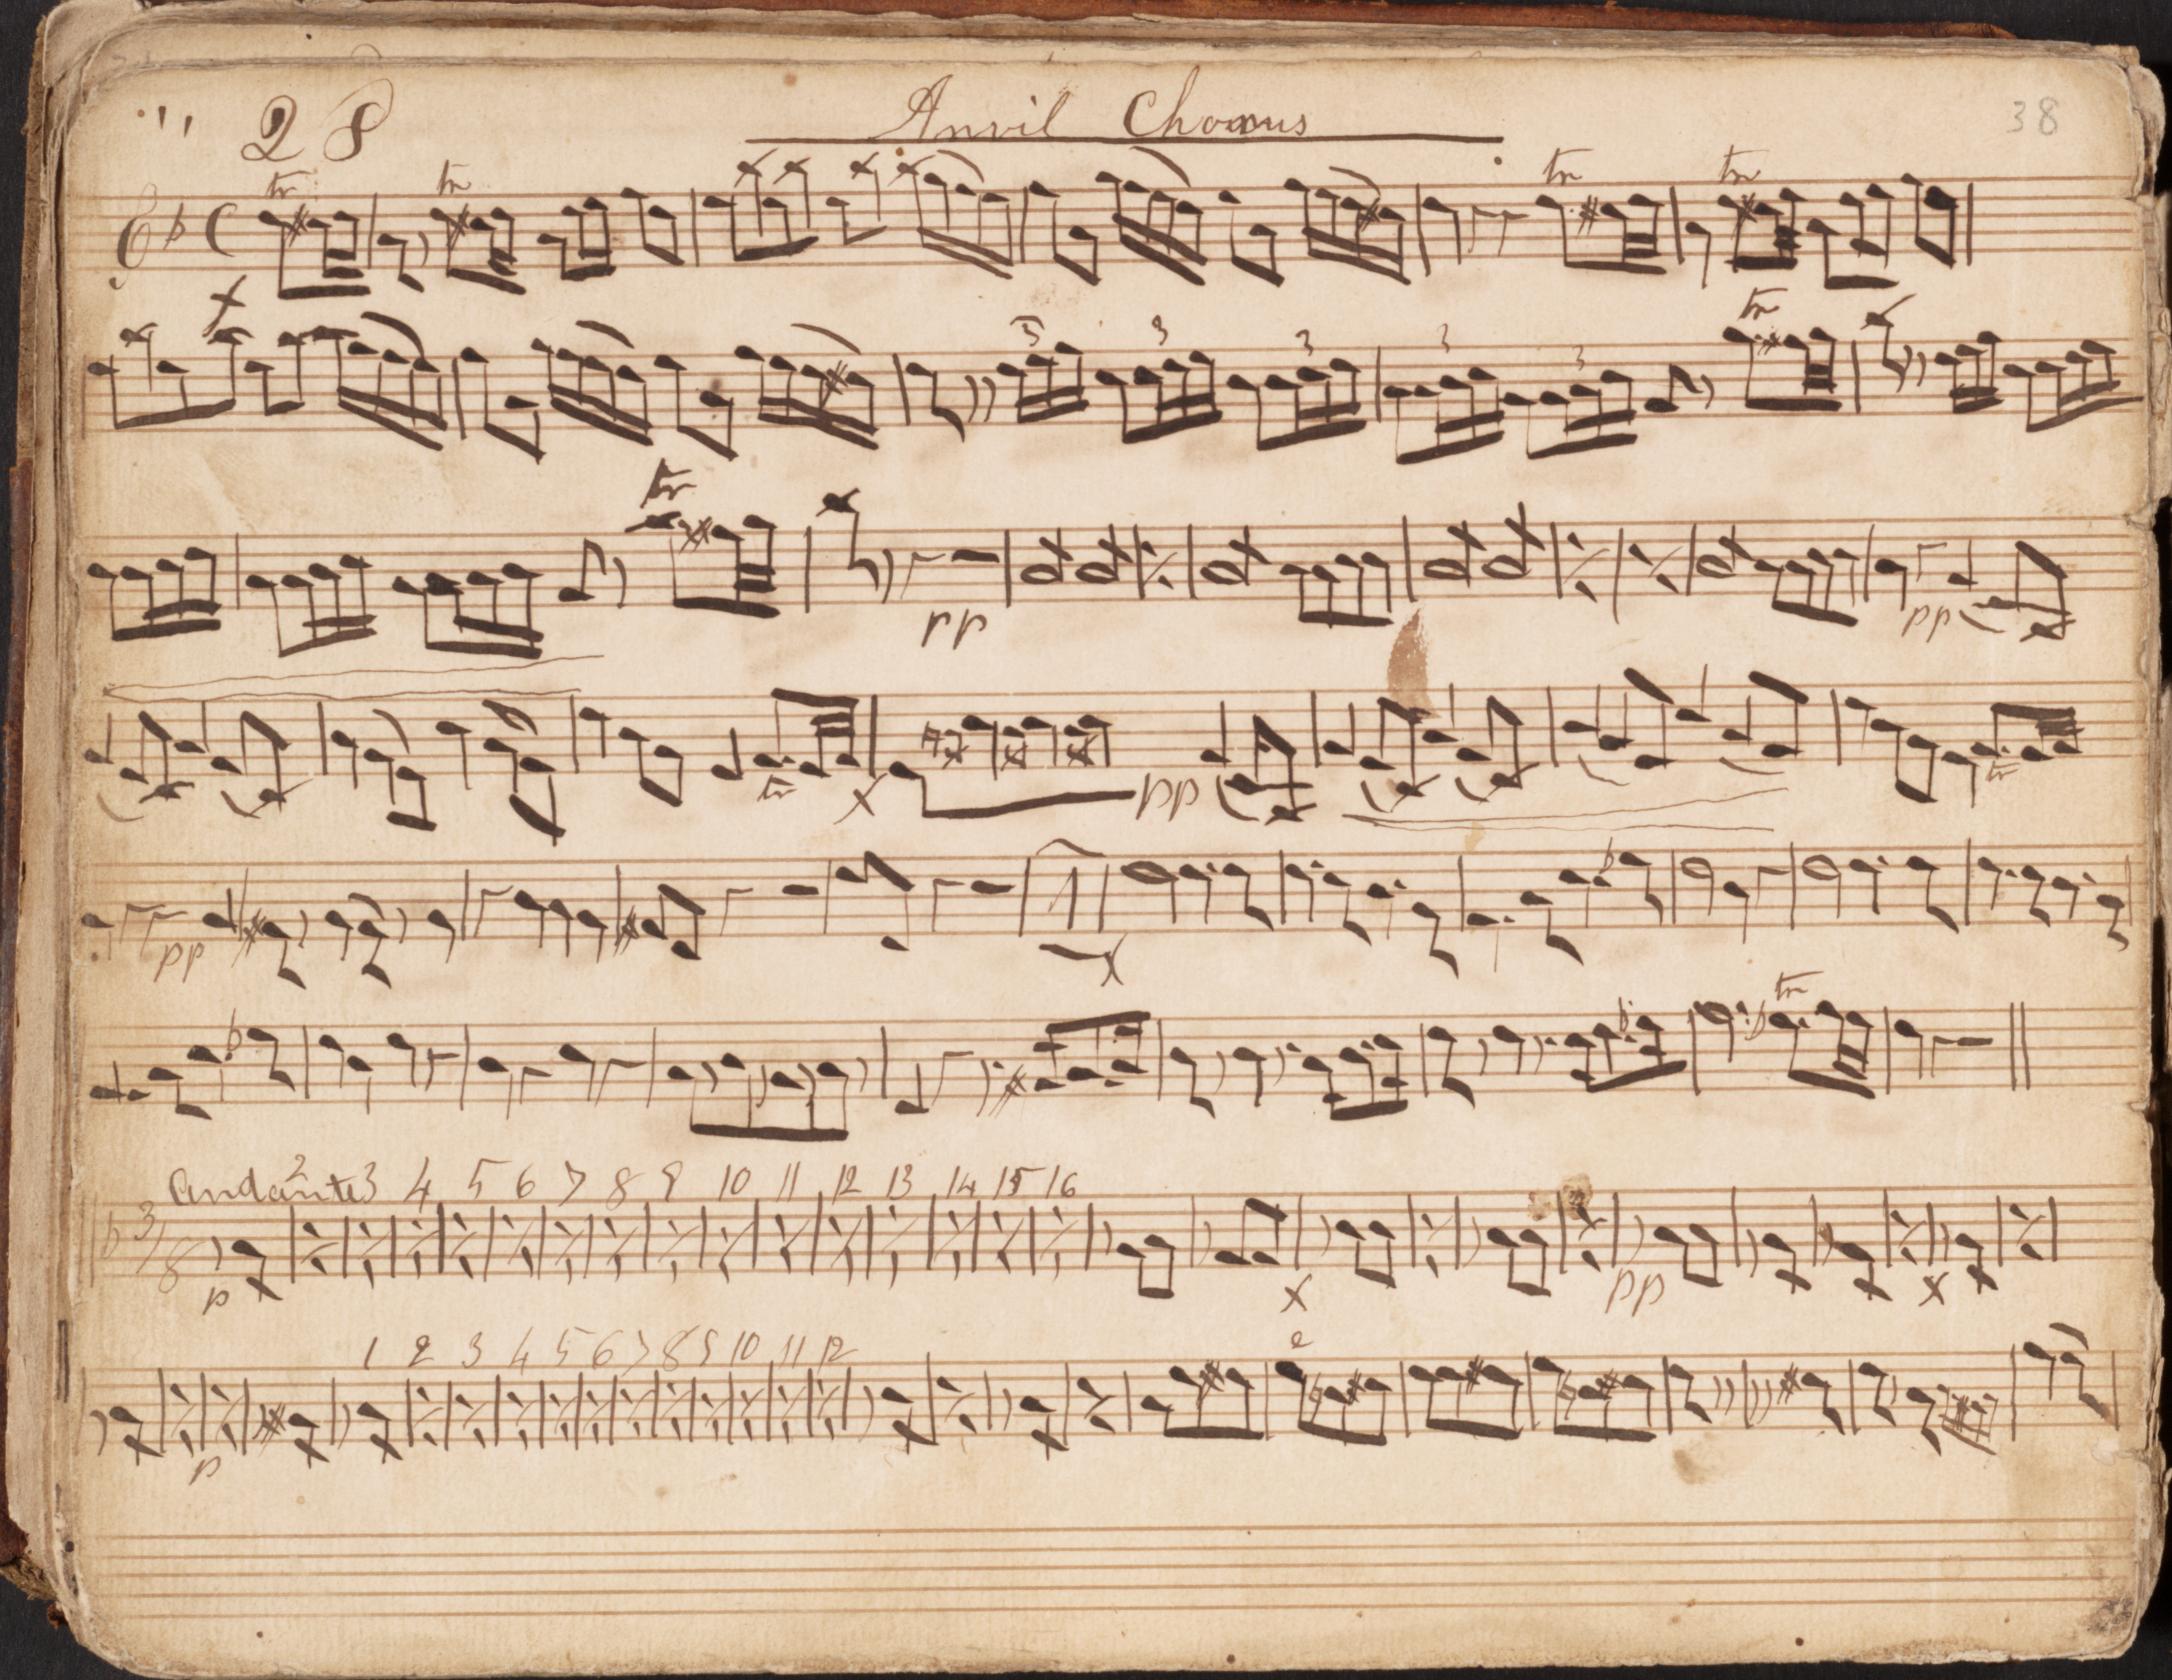 28 Anvil Chorus 38
tr tr tr tr
3 3 3 3 3 tr
tr
pp pp
tr pp tr
pp
tr
Andante 2 3 4 5 6 7 8 9 10 11 12 13 14 15 16
3/8
p pp
1 2 3 4 5 6 7 8 9 10 11 12 2
p